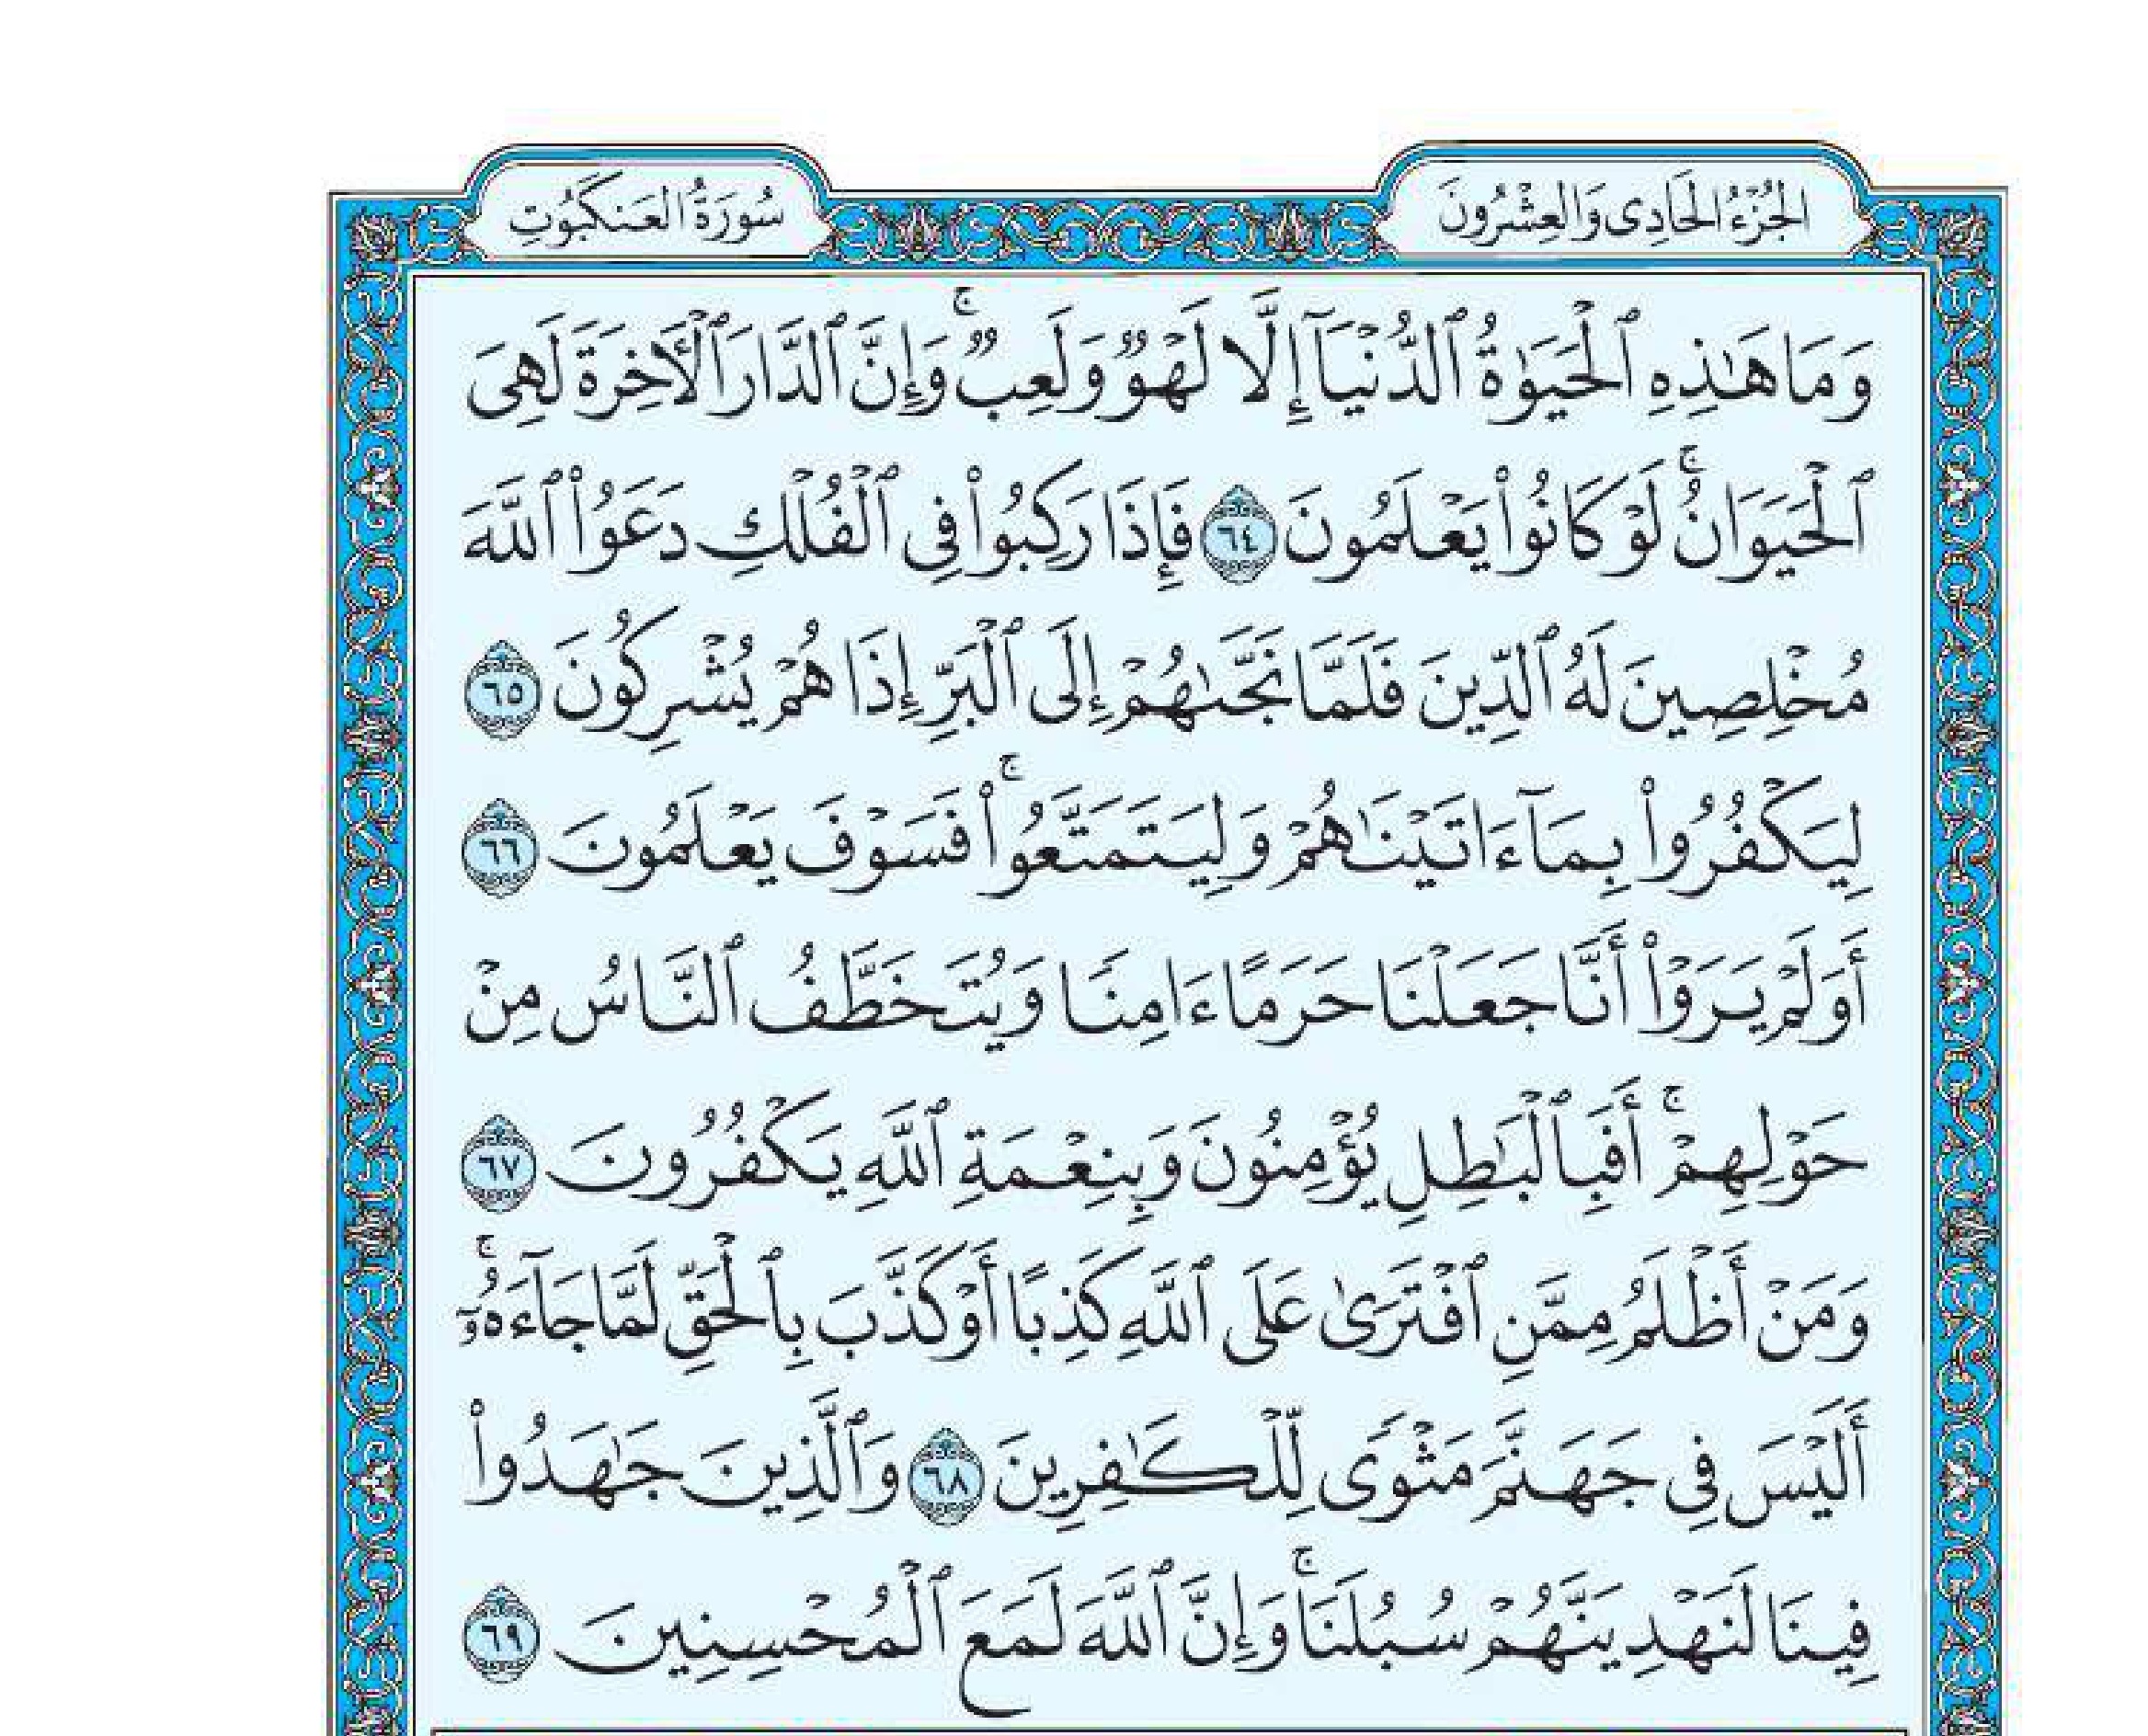 الجُزْءُ الحَادِى وَالعِشْرُونَ
سُورَةُ العَنكَبُوتِ
وَمَا هَٰذِهِ ٱلْحَيَوٰةُ ٱلدُّنْيَآ إِلَّا لَهْوٌ وَلَعِبٌ ۚ وَإِنَّ ٱلدَّارَ ٱلْءَاخِرَةَ لَهِىَ
ٱلْحَيَوَانُ ۚ لَوْ كَانُوا۟ يَعْلَمُونَ ٦٤ فَإِذَا رَكِبُوا۟ فِى ٱلْفُلْكِ دَعَوُا۟ ٱللَّهَ
مُخْلِصِينَ لَهُ ٱلدِّينَ فَلَمَّا نَجَّىٰهُمْ إِلَى ٱلْبَرِّ إِذَا هُمْ يُشْرِكُونَ ٦٥
لِيَكْفُرُوا۟ بِمَآ ءَاتَيْنَٰهُمْ وَلِيَتَمَتَّعُوا۟ ۚ فَسَوْفَ يَعْلَمُونَ ٦٦
أَوَلَمْ يَرَوْا۟ أَنَّا جَعَلْنَا حَرَمًا ءَامِنًا وَيُتَخَطَّفُ ٱلنَّاسُ مِنْ
حَوْلِهِمْ ۚ أَفَبِٱلْبَٰطِلِ يُؤْمِنُونَ وَبِنِعْمَةِ ٱللَّهِ يَكْفُرُونَ ٦٧
وَمَنْ أَظْلَمُ مِمَّنِ ٱفْتَرَىٰ عَلَى ٱللَّهِ كَذِبًا أَوْ كَذَّبَ بِٱلْحَقِّ لَمَّا جَآءَهُۥٓ ۚ
أَلَيْسَ فِى جَهَنَّمَ مَثْوًى لِّلْكَٰفِرِينَ ٦٨ وَٱلَّذِينَ جَٰهَدُوا۟
فِينَا لَنَهْدِيَنَّهُمْ سُبُلَنَا ۚ وَإِنَّ ٱللَّهَ لَمَعَ ٱلْمُحْسِنِينَ ٦٩